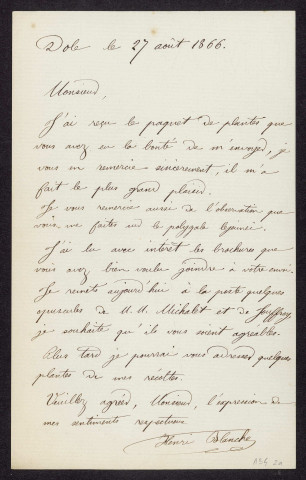 Dole le 27 août 1866.
Monsieur,
J'ai reçu le paquet de plantes que
vous avez eu la bonté de m'envoyer, je
vous en remercie sincèrement, il m'a
fait le plus grand plaisir.
Je vous remercie aussi de l'observation que
vous me faites sur le polygala
J'ai lu avec intérêt les brochures que
vous avez bien voulu joindre à votre envoi.
Je remets aujourd'hui à la poste quelques
opuscules de M. M. Michalet et de Jouffroy,
je souhaite qu'ils vous soient agréables.
Plus tard je pourrai vous adresser quelques
plantes de mes récoltes.
Veuillez agréer, Monsieur, l'expression de
mes sentiments respectueux
Henri Blanche